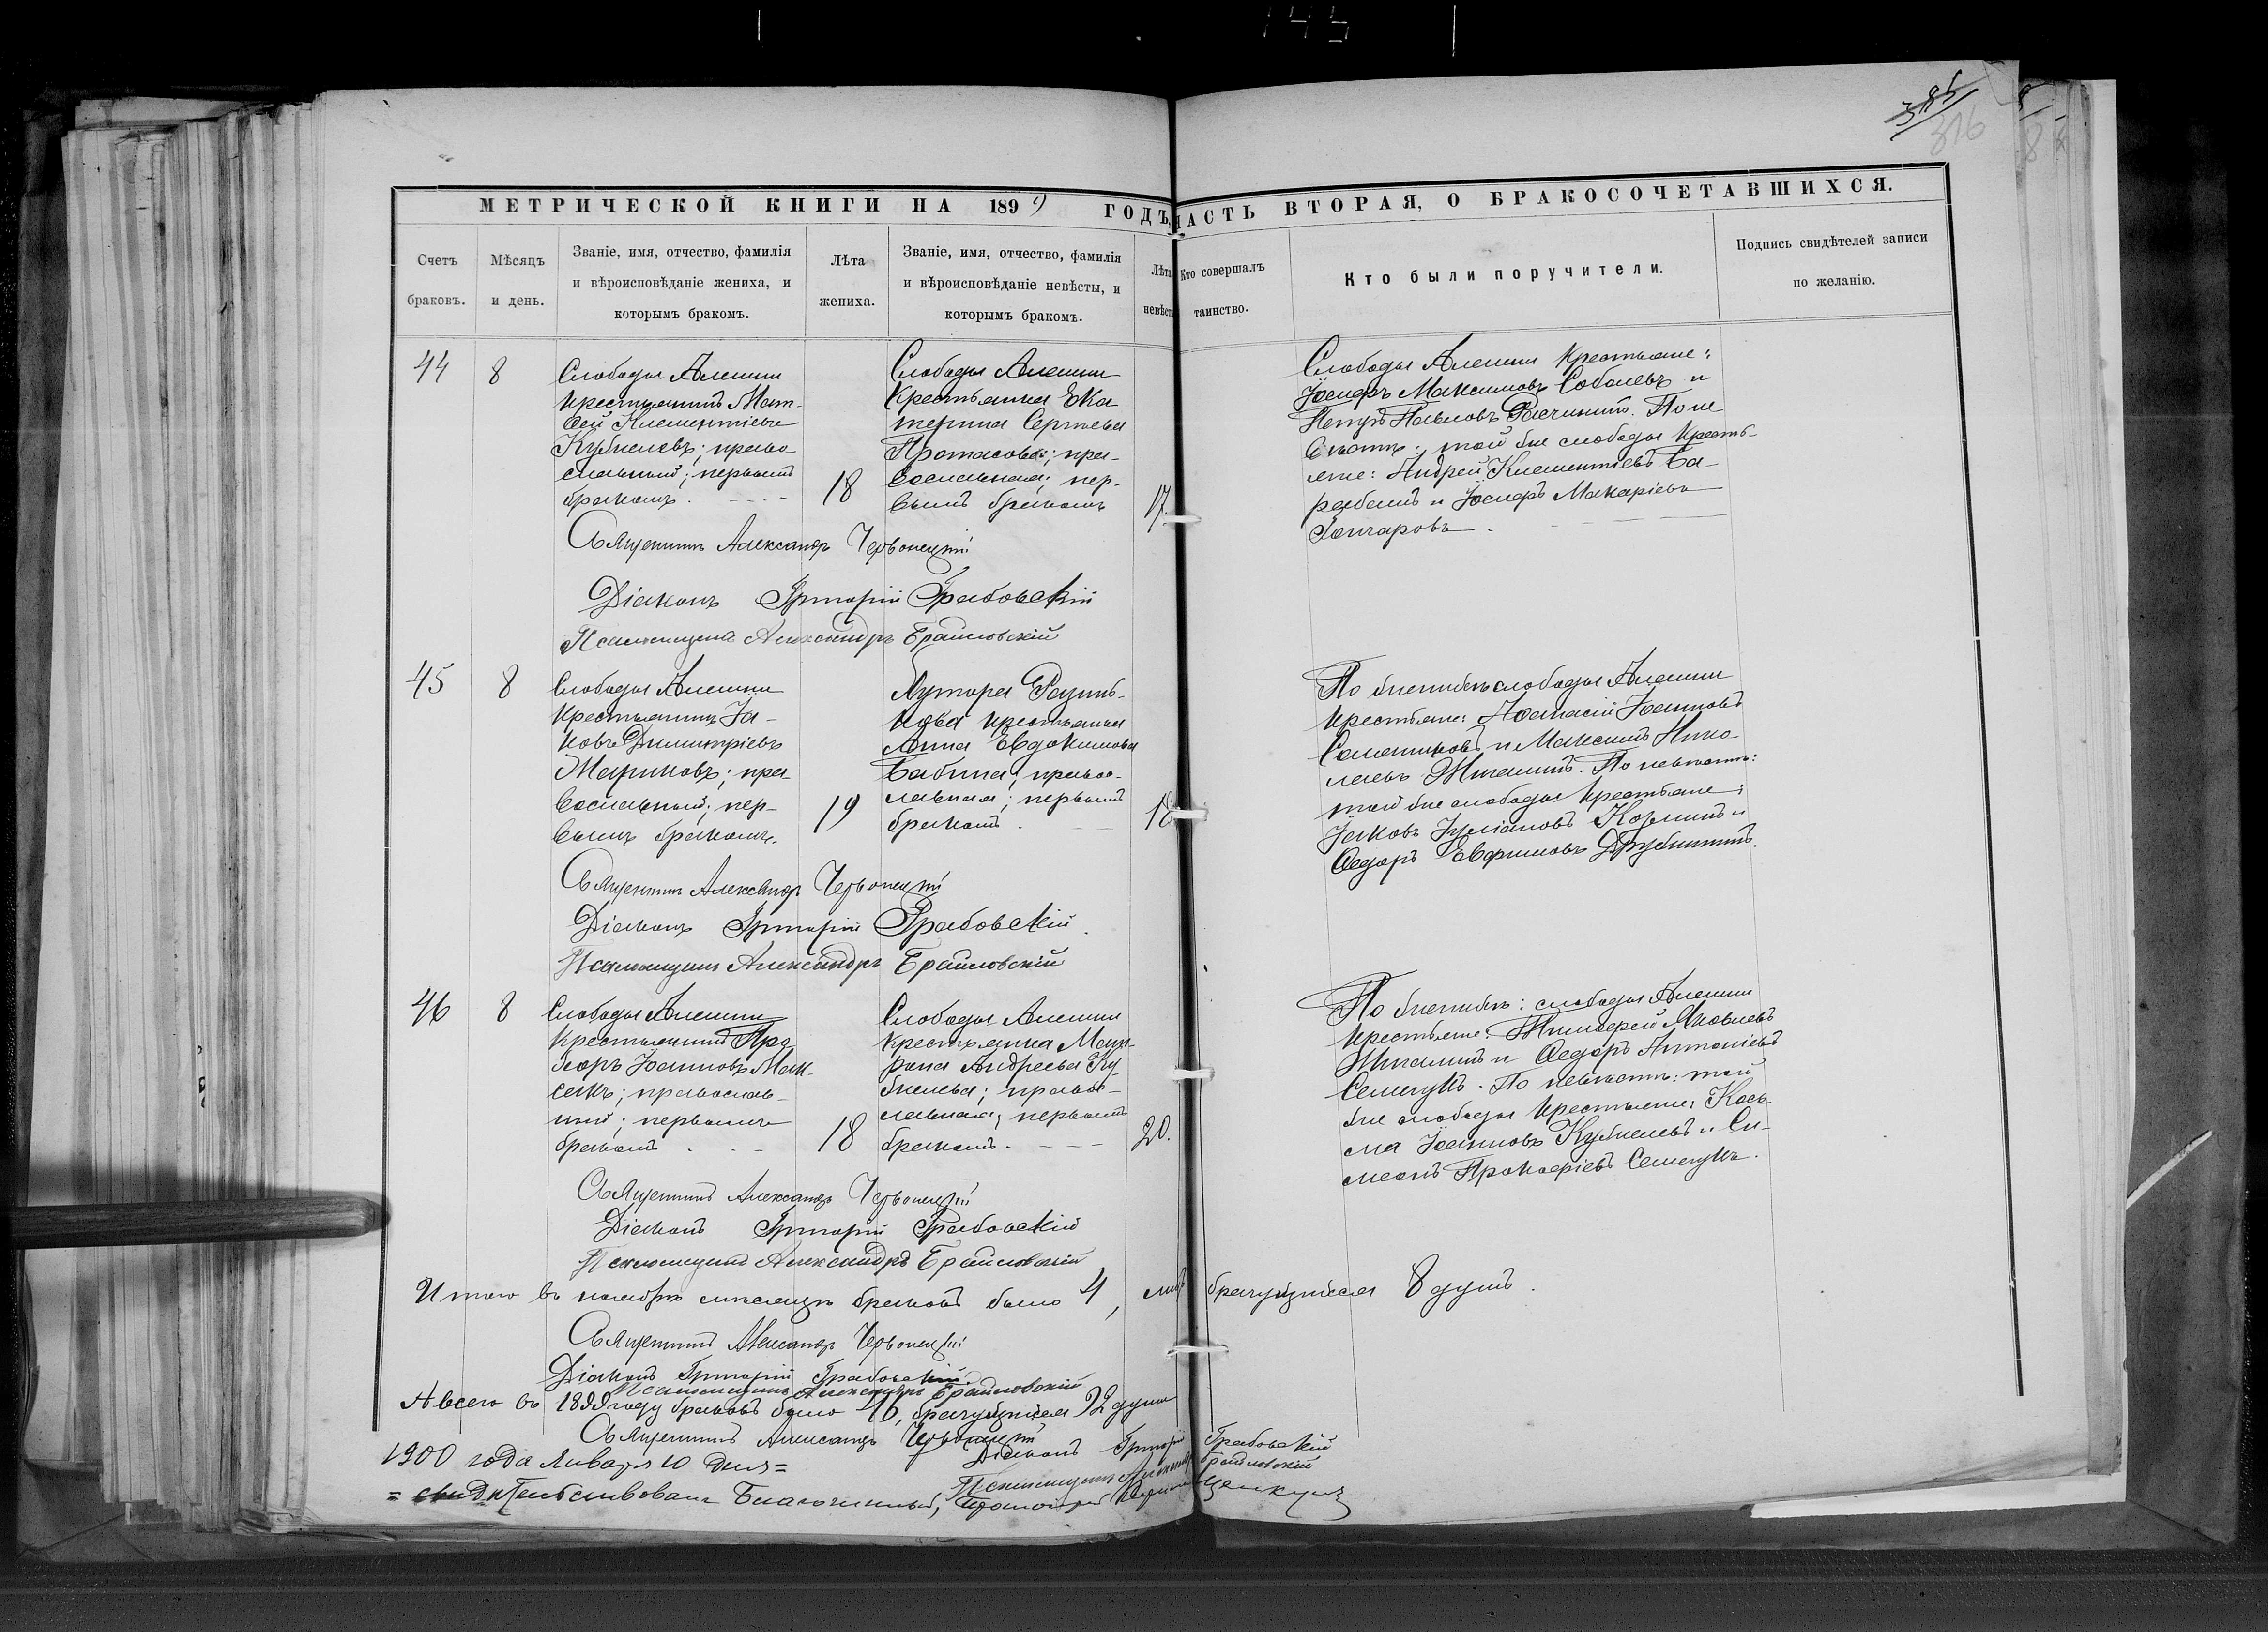 145
385
316
МЕТРИЧЕСКОЙ КНИГИ НА 1899 ГОДЪ
ЧАСТЬ ВТОРАЯ, О БРАКОСОЧЕТАВШИХСЯ.
Счетъ браковъ.
Мѣсяцъ и день.
Званіе, имя, отчество, фамилія
и вѣроисповѣданіе жениха, и
которымъ бракомъ.
Лѣта
жениха.
Званіе, имя, отчество, фамилія
и вѣроисповѣданіе невѣсты, и
которымъ бракомъ.
Лѣта
невѣст
Кто совершалъ
таинство.
Кто были поручители.
Подпись свидѣтелей записи
по желанію.
44
8
Слободы Алешки
крестьянинъ Мат-
ѳей Климентіевъ
Кубиевъ; право-
славный; первымъ
бракомъ.
18
Слободы Алешки
крестьянка Ека
терина Сергѣева
Протасова; пра-
вославная; пер-
вымъ бракомъ
17.
Слободы Алешки крестьяне:
Іосифъ Максимовъ Соболевъ и
Петръ Павловъ. По не
вѣстѣ: той же слободы кресть-
яне: Андрей Климентіевъ Ба-
рабашъ и Іосифъ Макаріевъ
Гончаровъ.
Священникъ Александръ Червонецкій
Діаконъ Григорій Грабовскій
Псаломщикъ Александръ Браиловскій
45
8
Слободы Алешки
крестьянинъ Іа-
ковъ Димитріевъ
Мариковъ; пра-
вославный; пер-
вымъ бракомъ.
19
Хутора
крестьянка
Анна Евдокимова
Бабина; правос-
лавная; первымъ
бракомъ.
18
По женихѣ слободы Алешки
крестьяне: Аѳанасій Іоанновъ
и Максимъ Нико-
лаевъ. По невѣстѣ:
той же слободы крестьяне:
Іаковъ Іуліановъ и
Ѳедоръ Евфимовъ
Священникъ Александръ Червонецкій
Діаконъ Григорій Грабовскій
Псаломщикъ Александръ Браиловскій
46
8
Слободы Алешки
крестьянинъ
Іоанновъ Мак-
сакъ; православ-
ный; первымъ
бракомъ
18
Слободы Алешки
крестьянка Мат-
рона Андреева Ку-
биева; правос-
лавная; первымъ
бракомъ.
20.
По женихѣ: слободы Алешки
крестьяне: Тимоѳей Яковлевъ
и Ѳедоръ Антоніевъ
Семегукъ. По невѣстѣ: той
же слободы крестьяне: Козь-
ма Іоанновъ Кубиевъ и Си-
меонъ Прокофіевъ Семегукъ.
Священникъ Александръ Червонецкій
Діаконъ Григорій Грабовскій
Псаломщикъ Александръ Браиловскій
Итого въ ноябрѣ мѣсяцѣ браковъ было 4, лицъ брачущихся 8 душъ.
Священникъ Александръ Червонецкій
Діаконъ Григорій Грабовскій.
Псаломщикъ Александръ Браиловскій
А всего въ 1899 году браковъ было 46, брачущихся 92 души
Священникъ Александръ Червонецкій
Діаконъ Григорій Грабовскій
Псаломщикъ Александръ Браиловскій
1900 года Января 10 дня =
= свидѣтельствовалъ Благочинный, Протоіерей